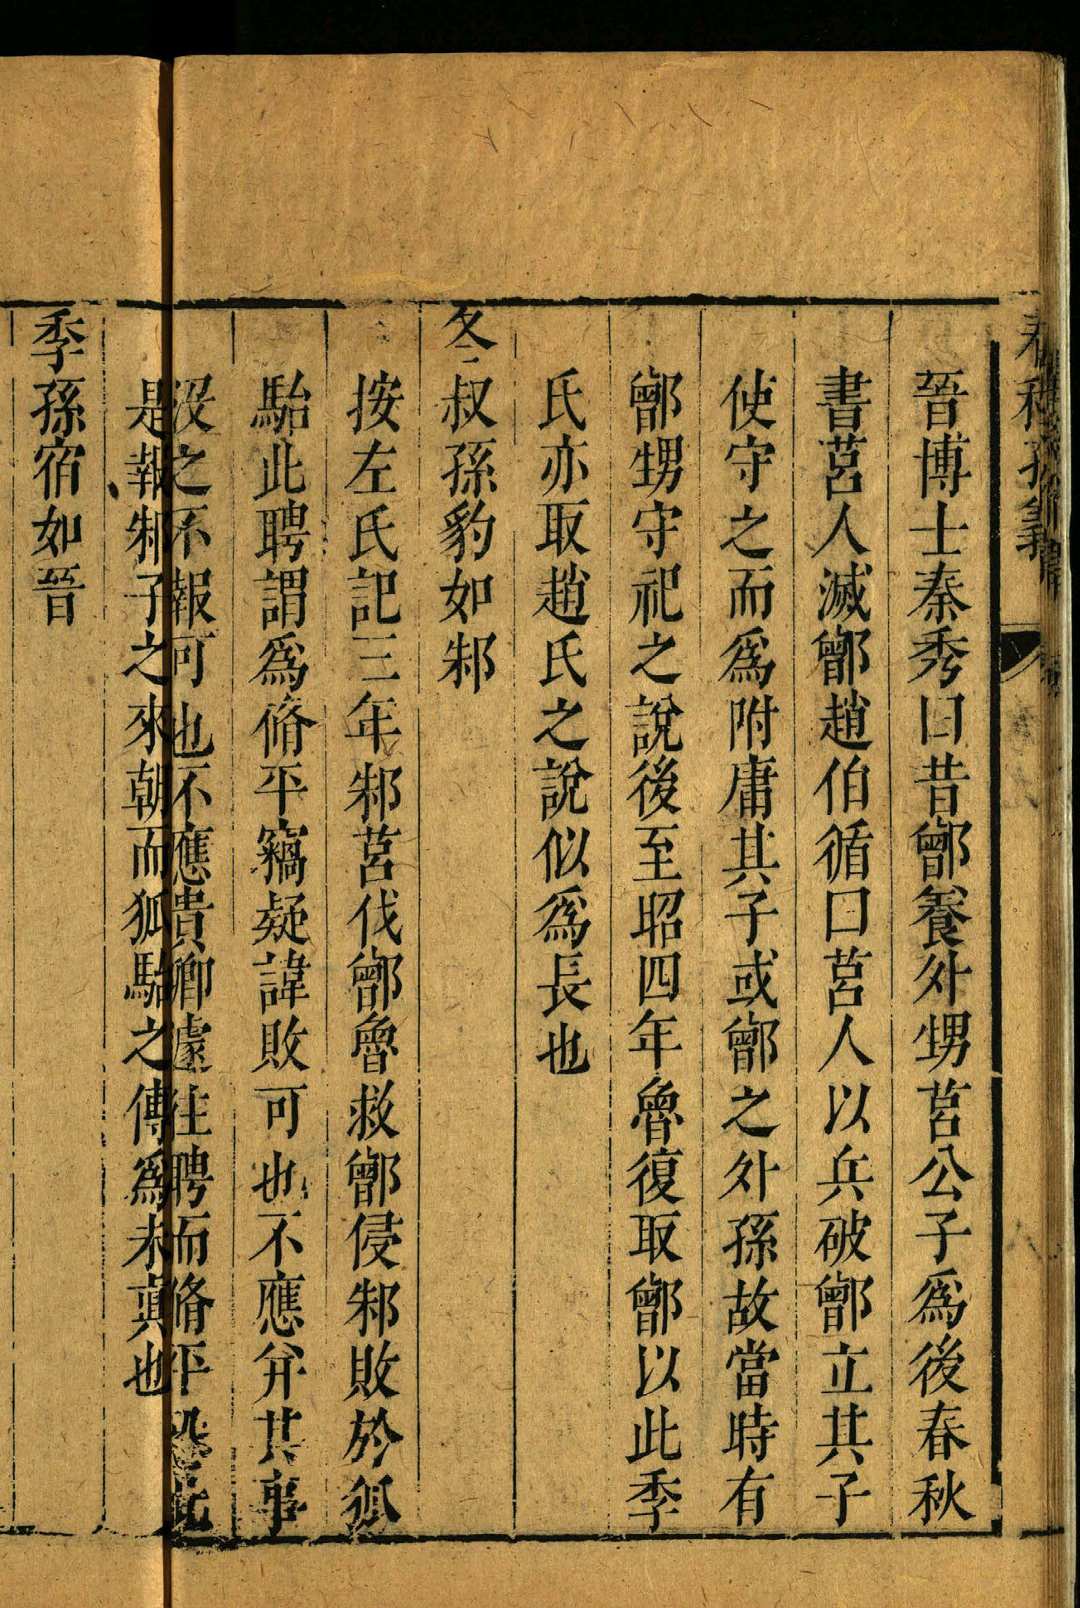 晉博士秦秀曰昔鄫養外甥莒公子爲後春秋
書莒人滅鄫趙伯循曰莒人以兵破鄫立其子
使守之而爲附庸其子或鄫之外孫故當時有
鄫甥守祀之說後至昭四年魯復取鄫以此季
氏亦取趙氏之說似爲長也
冬叔孫豹如邾
按左氏記三年邾莒伐鄫魯救鄫侵邾敗於狐
駘此聘謂爲脩平竊疑諱敗可也不應弁其事
沒之不報可也不應貴卿遽往聘而脩平恐此
是報邾子之來朝而狐駘之傳爲未眞也
季孫宿如晉